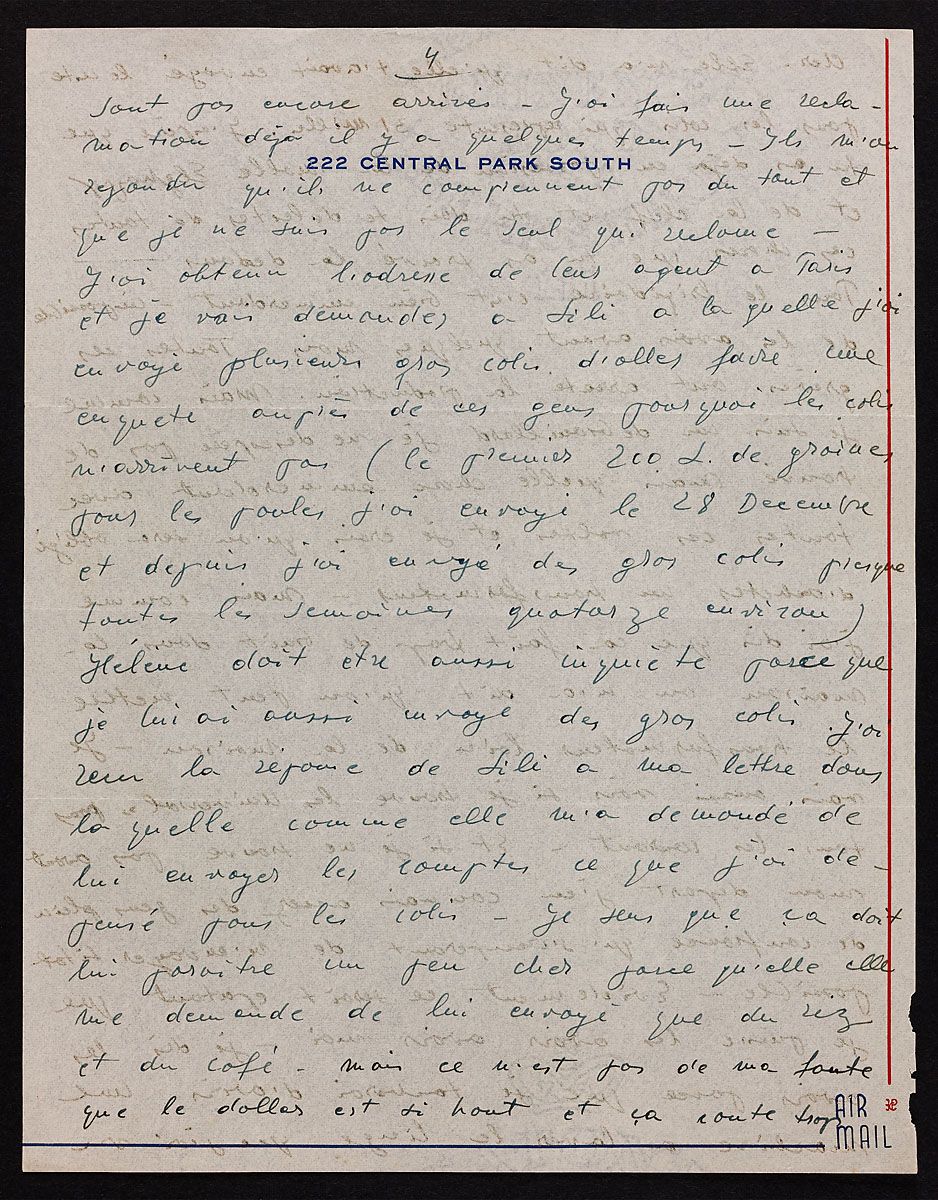 4
sont pas encore arrivés - J'ai fais une recla-
mation déja il y a quelques temps - Ils m'on
222 CENTRAL PARK SOUTH
repondu qu'ils ne comprennent pas du tout et
que je ne suis pas le seul qui reclame -
J'ai obtenu l'adresse de leur agent a Paris
et je vais demander a Lili a la quelle j'ai
envoyé plusieurs gros colis d'aller faire une
enquete auprès de ces gens pourquoi les colis
n'arrivent pas ( le premier 200 L. de graines
pour les poules j'ai envoyé le 28 Decembre
et depuis j'ai envoyé des gros colis presque
toutes les semaines quatorze environ )
Hélène doit etre aussi inquiete parce que
je lui ai aussi envoyé des gros colis. J'ai
recu la reponse de Lili a ma lettre dans
la quelle comme elle m'a demandé de
lui envoyer les comptes ce que j'ai de-
pensé pour les colis - Je sens que ca doit
lui paraitre un peu cher parce qu'elle elle
me demande de lui envoyé que du riz
et du café - mais ce n'est pas de ma faute
que le dollar est si haut et ça coute trop
AIR
MAIL